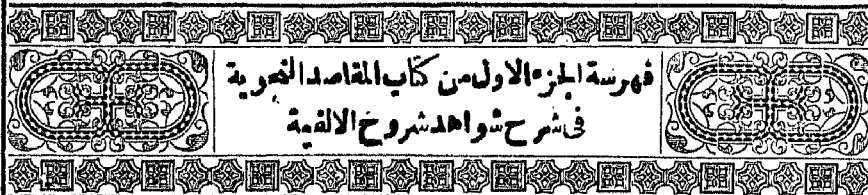 فهرسة الجزء الاول من كتاب المقاصد النحوية
فى شرح شواهد شروح الالفية